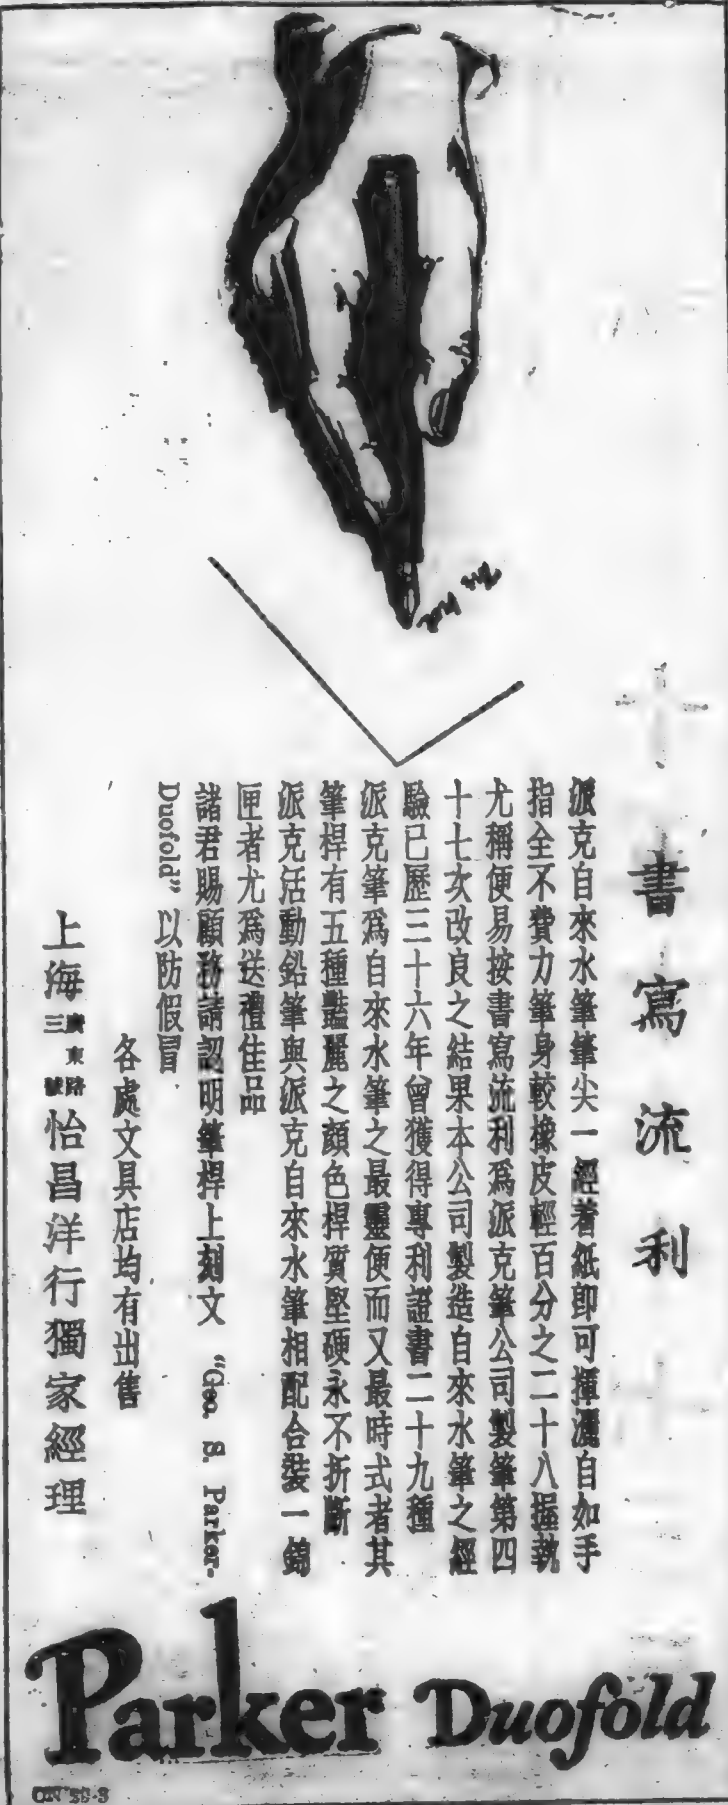 書寫流利
派克自來水筆筆尖一經着紙即可揮灑自如手
指全不費力筆身較橡皮輕百分之二十八握執
尤稱便易按書寫流利爲派克筆公司製筆第四
十七次改良之結果本公司製造自來水筆之經
驗已歷三十六年曾獲得專利證書二十九種
派克筆爲自來水筆之最靈便而又最時式者其
筆桿有五種豔麗之顏色桿質堅硬永不折斷
派克活動鉛筆與派克自來水筆相配合裝一錦
匣者尤爲送禮佳品
諸君賜顧務請認明筆桿上刻文 "Geo. S. Parker-
Duofold" 以防假冒
各處文具店均有出售
上海廣東路三號怡昌洋行獨家經理
Parker Duofold